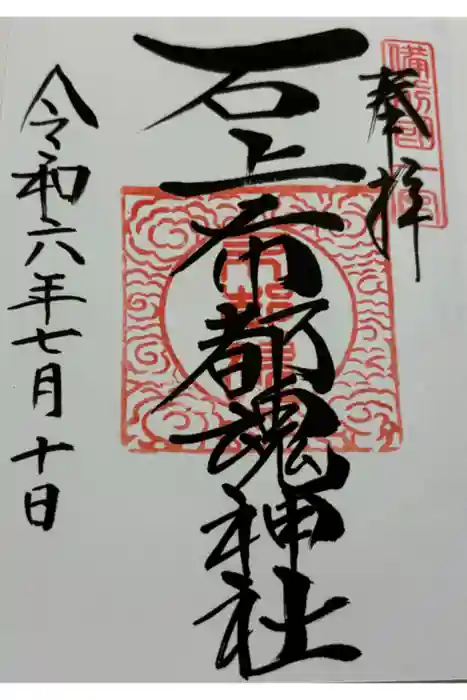 奉拝
備前国一宮
石上布都魂神社
令和六年七月十日